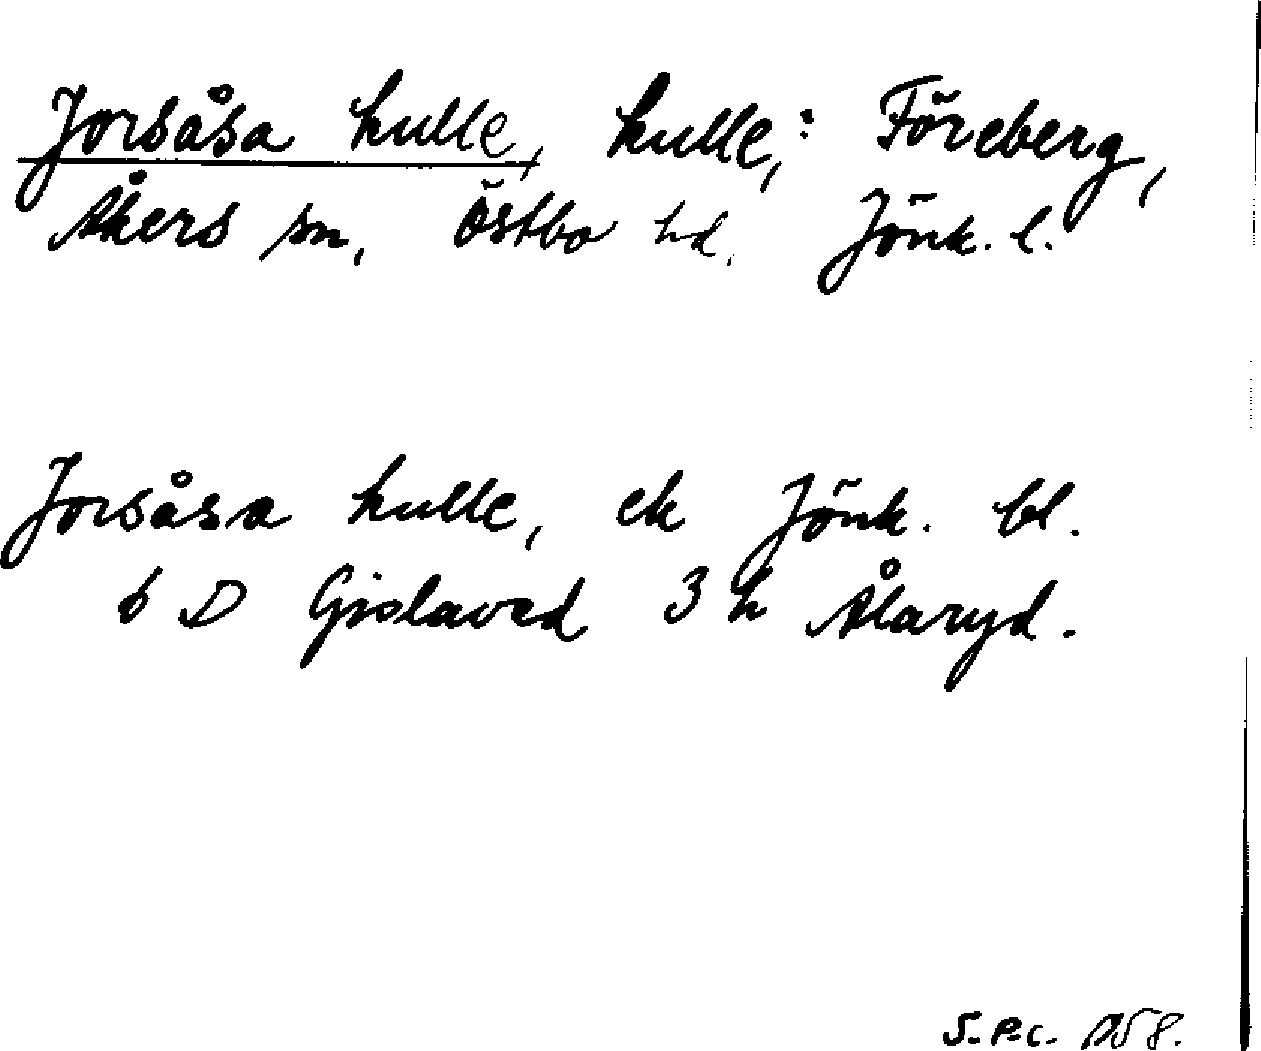 Jorsåsa kulle, kulle,: Föreberg,
Åkers sn, Östbo hd, Jönk. l.
Jorsåsa kulle, ek Jönk. bl.
6 D Gislaved 3 h Ålaryd.
S.P.C. 1958.